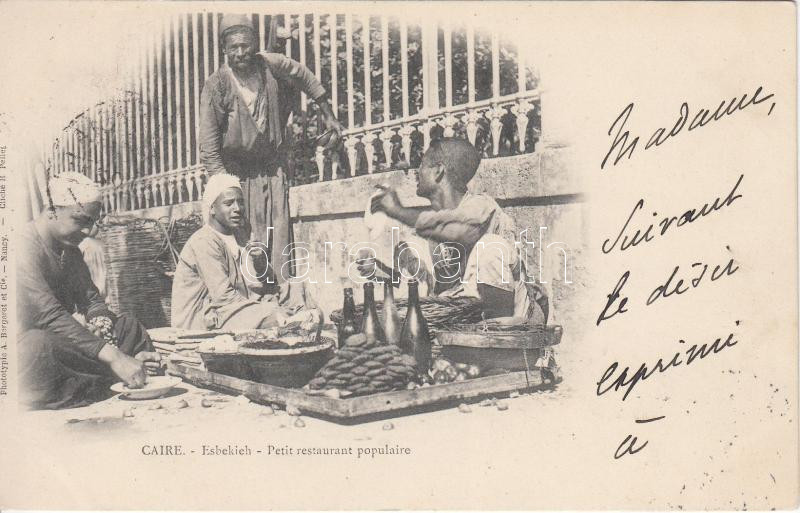 Madame,
Suivant
le désir
exprimé
à
CAIRE. - Esbekieh - Petit restaurant populaire
Phototypie A. Bergeret et Cie. — Nancy. — Cliché H Pellet
darabanth